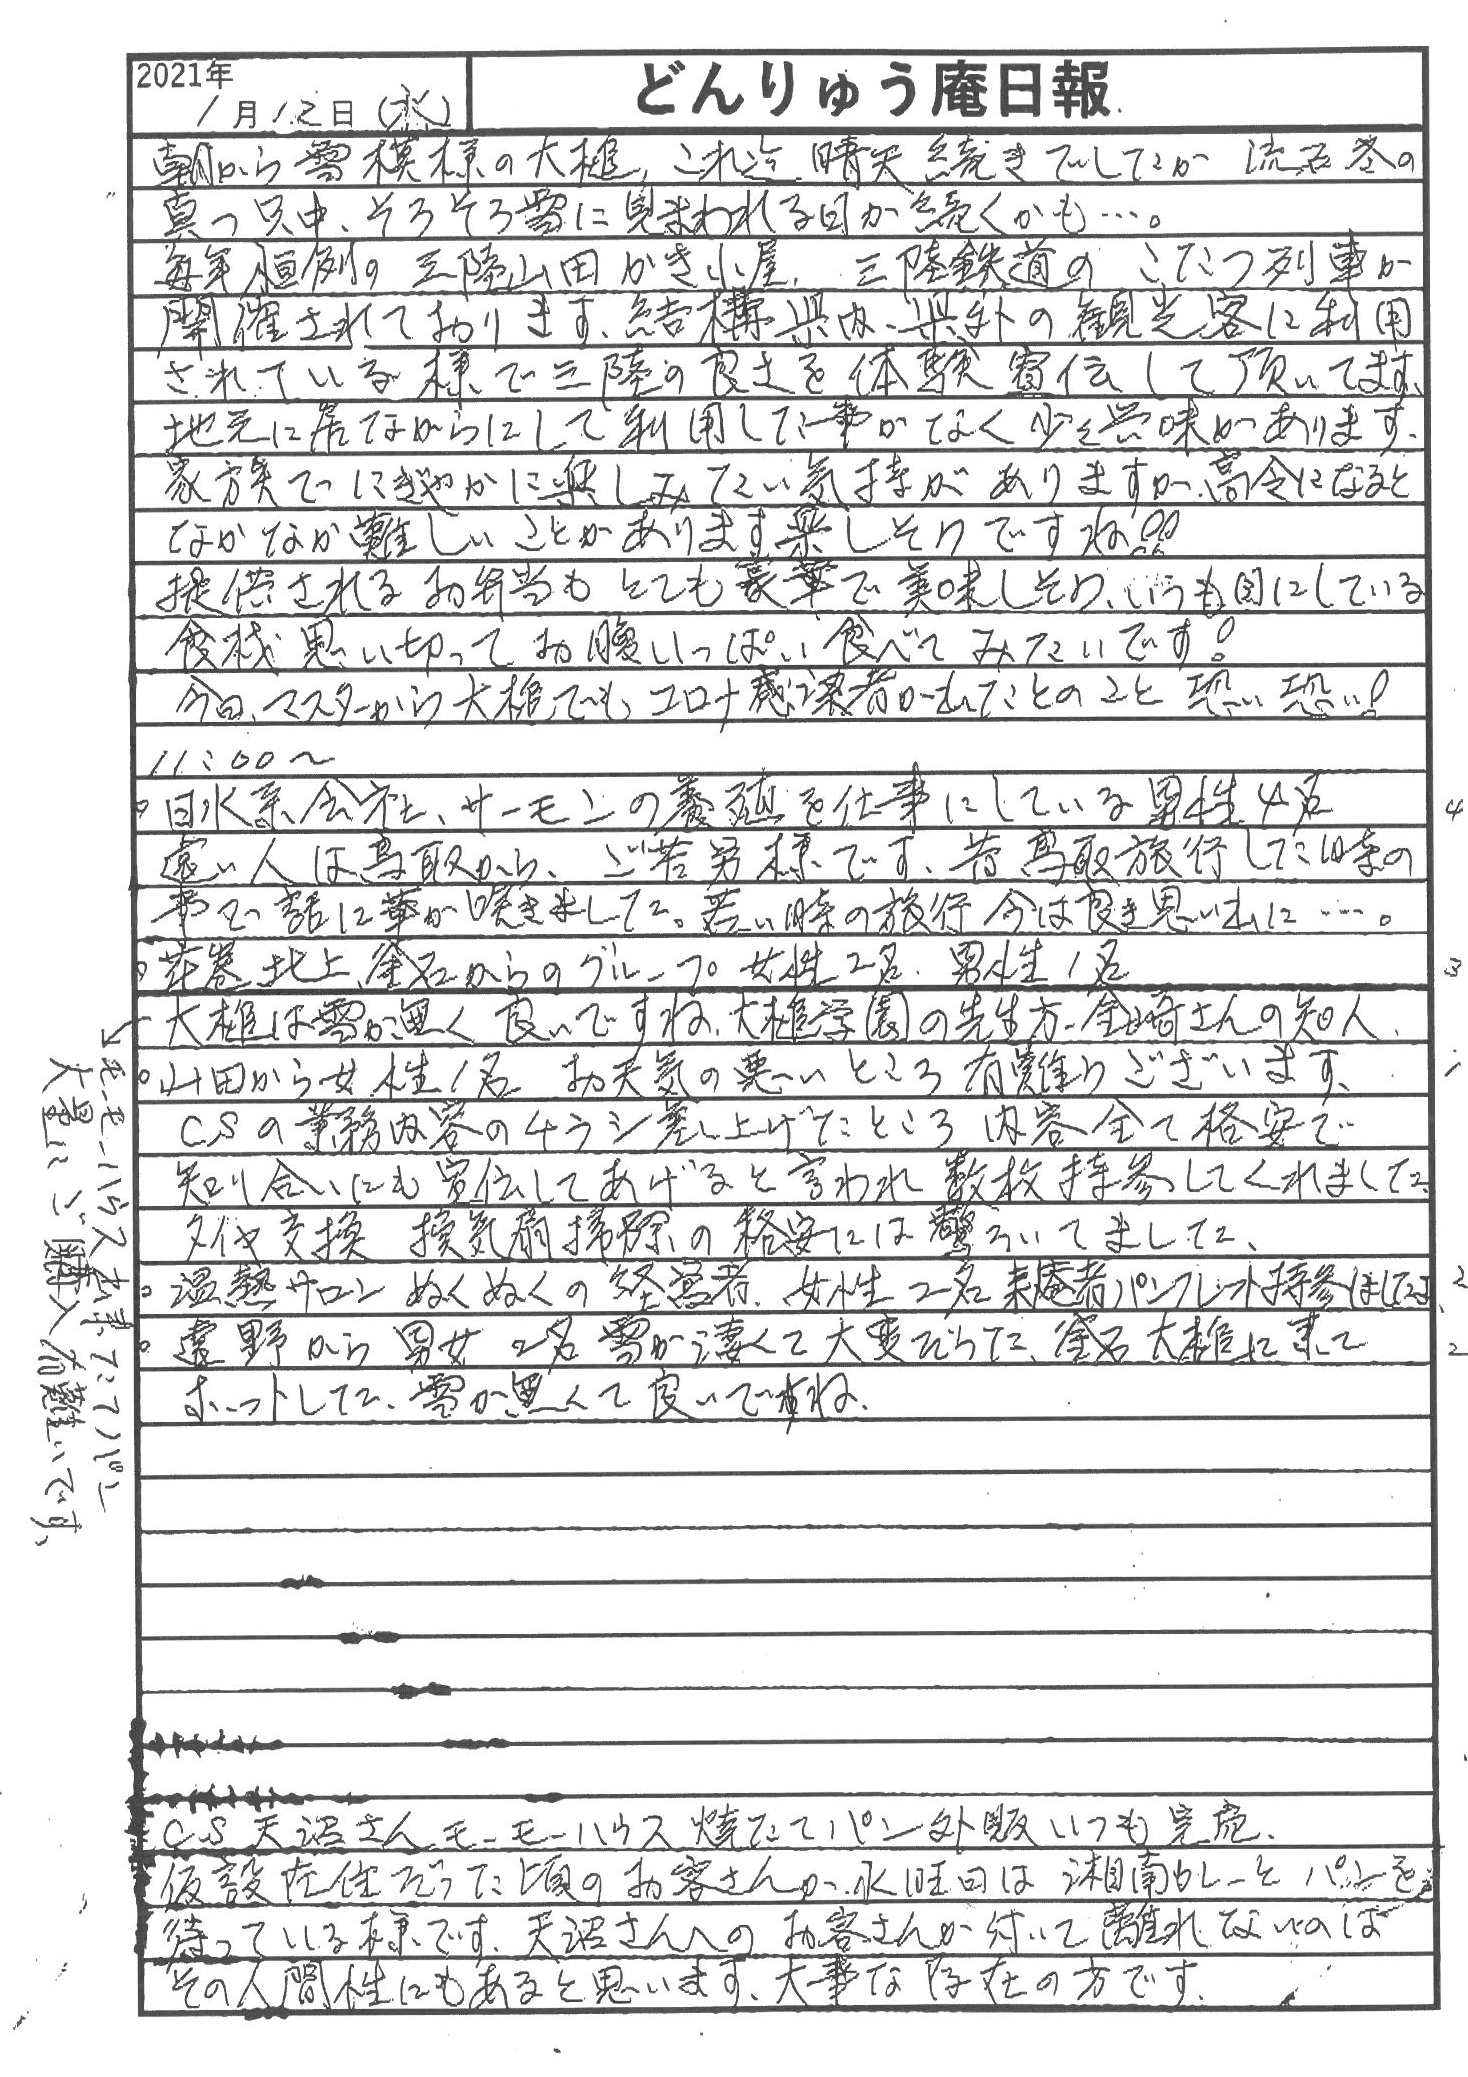 2021年
1月12日(水)
どんりゅう庵日報
朝から雪模様の大槌、これ迄晴天続きでしたが流石冬の
真っ只中、そろそろ雪に見まわれる日が続くかも…。
毎年恒例の三陸山田かき小屋、三陸鉄道のこたつ列車が
開催されております、結構県内、県外の観光客に利用
されている様で三陸の良さを体験宣伝して頂いてます、
地元に居ながらにして利用した事がなく少々興味があります、
家族でにぎやかに楽しみたい気持がありますが、高令になると
なかなか難しいことがあります楽しそうですね!!
提供されるお弁当もとても豪華で美味しそう、いつも目にしている
食材思い切ってお腹いっぱい食べてみたいです!
今日、マスターから大槌でもコロナ感染者が出たとのこと恐い恐い!
11:00~
○日水系会社、サーモンの養殖を仕事にしている男性4名
4
遠い人は鳥取から、ご苦労様です、昔鳥取旅行した時の
事で話に華が咲きました。若い時の旅行今は良き思い出に…。
○花巻、北上、釜石からのグループ女性2名、男性1名
3
大槌は雪が無く良いですね、大槌学園の先生方、金崎さんの知人、
○山田から女性1名 お天気の悪いところ有難うございます、
1
CSの業務内容のチラシ差し上げたところ内容全て格安で
知り合いにも宣伝してあげると言われ数枚持参してくれました、
タイヤ交換 換気扇掃除の格安には驚ろいてました、
○温熱サロンぬくぬくの経営者、女性2名来庵者パンフレット持参しました、
2
○遠野から男女2名雪が凄くて大変だった、釜石大槌に来て
2
ホットした、雪が無くて良いですね、
→モーモーハウス焼たてパン
大量にご購入有難いです、
CS天沼さんモーモーハウス焼たてパン外販いつも完売、
仮設在住だった頃のお客さんが、水曜日は湘南カレーとパンを
待っている様です、天沼さんへのお客さんが付いて離れないのは
その人間性にもあると思います、大事な存在の方です、